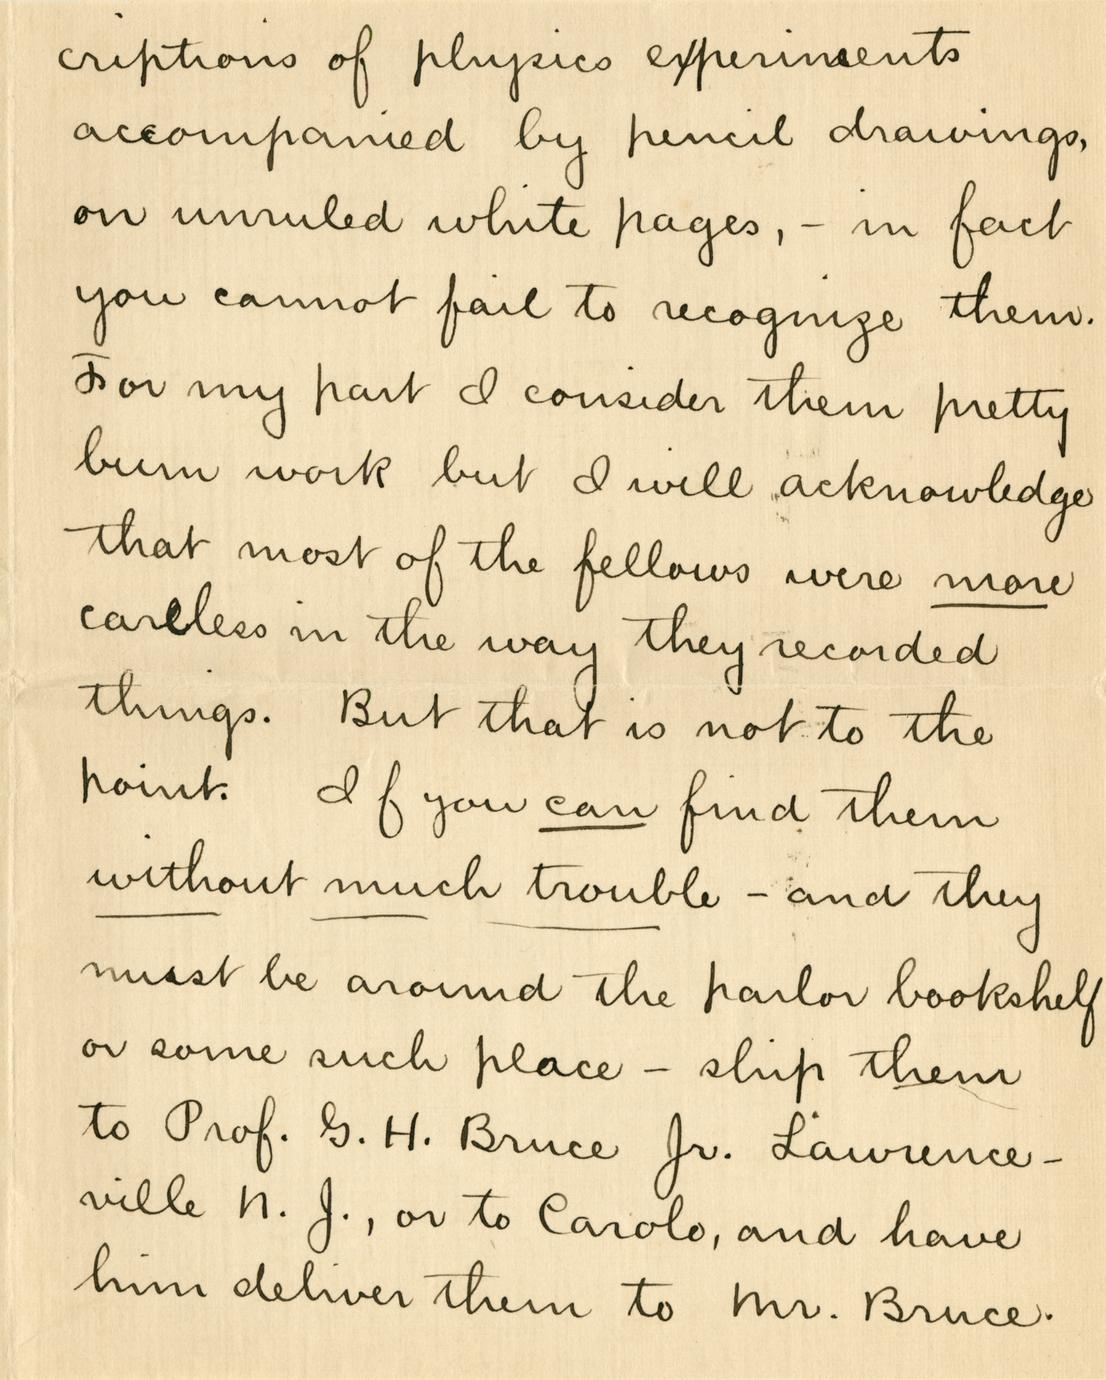 criptions of physics experiments
accompanied by pencil drawings,
on unruled white pages, - in fact
you cannot fail to recognize them.
For my part I consider them pretty
bum work but I will acknowledge
that most of the fellows were more
careless in the way they recorded
things. But that is not to the
point. If you can find them
without much trouble - and they
must be around the parlor bookshelf
or some such place - ship them
to Prof. G. H. Bruce Jr. Lawrence-
ville N. J., or to Carolo, and have
him deliver them to Mr. Bruce.